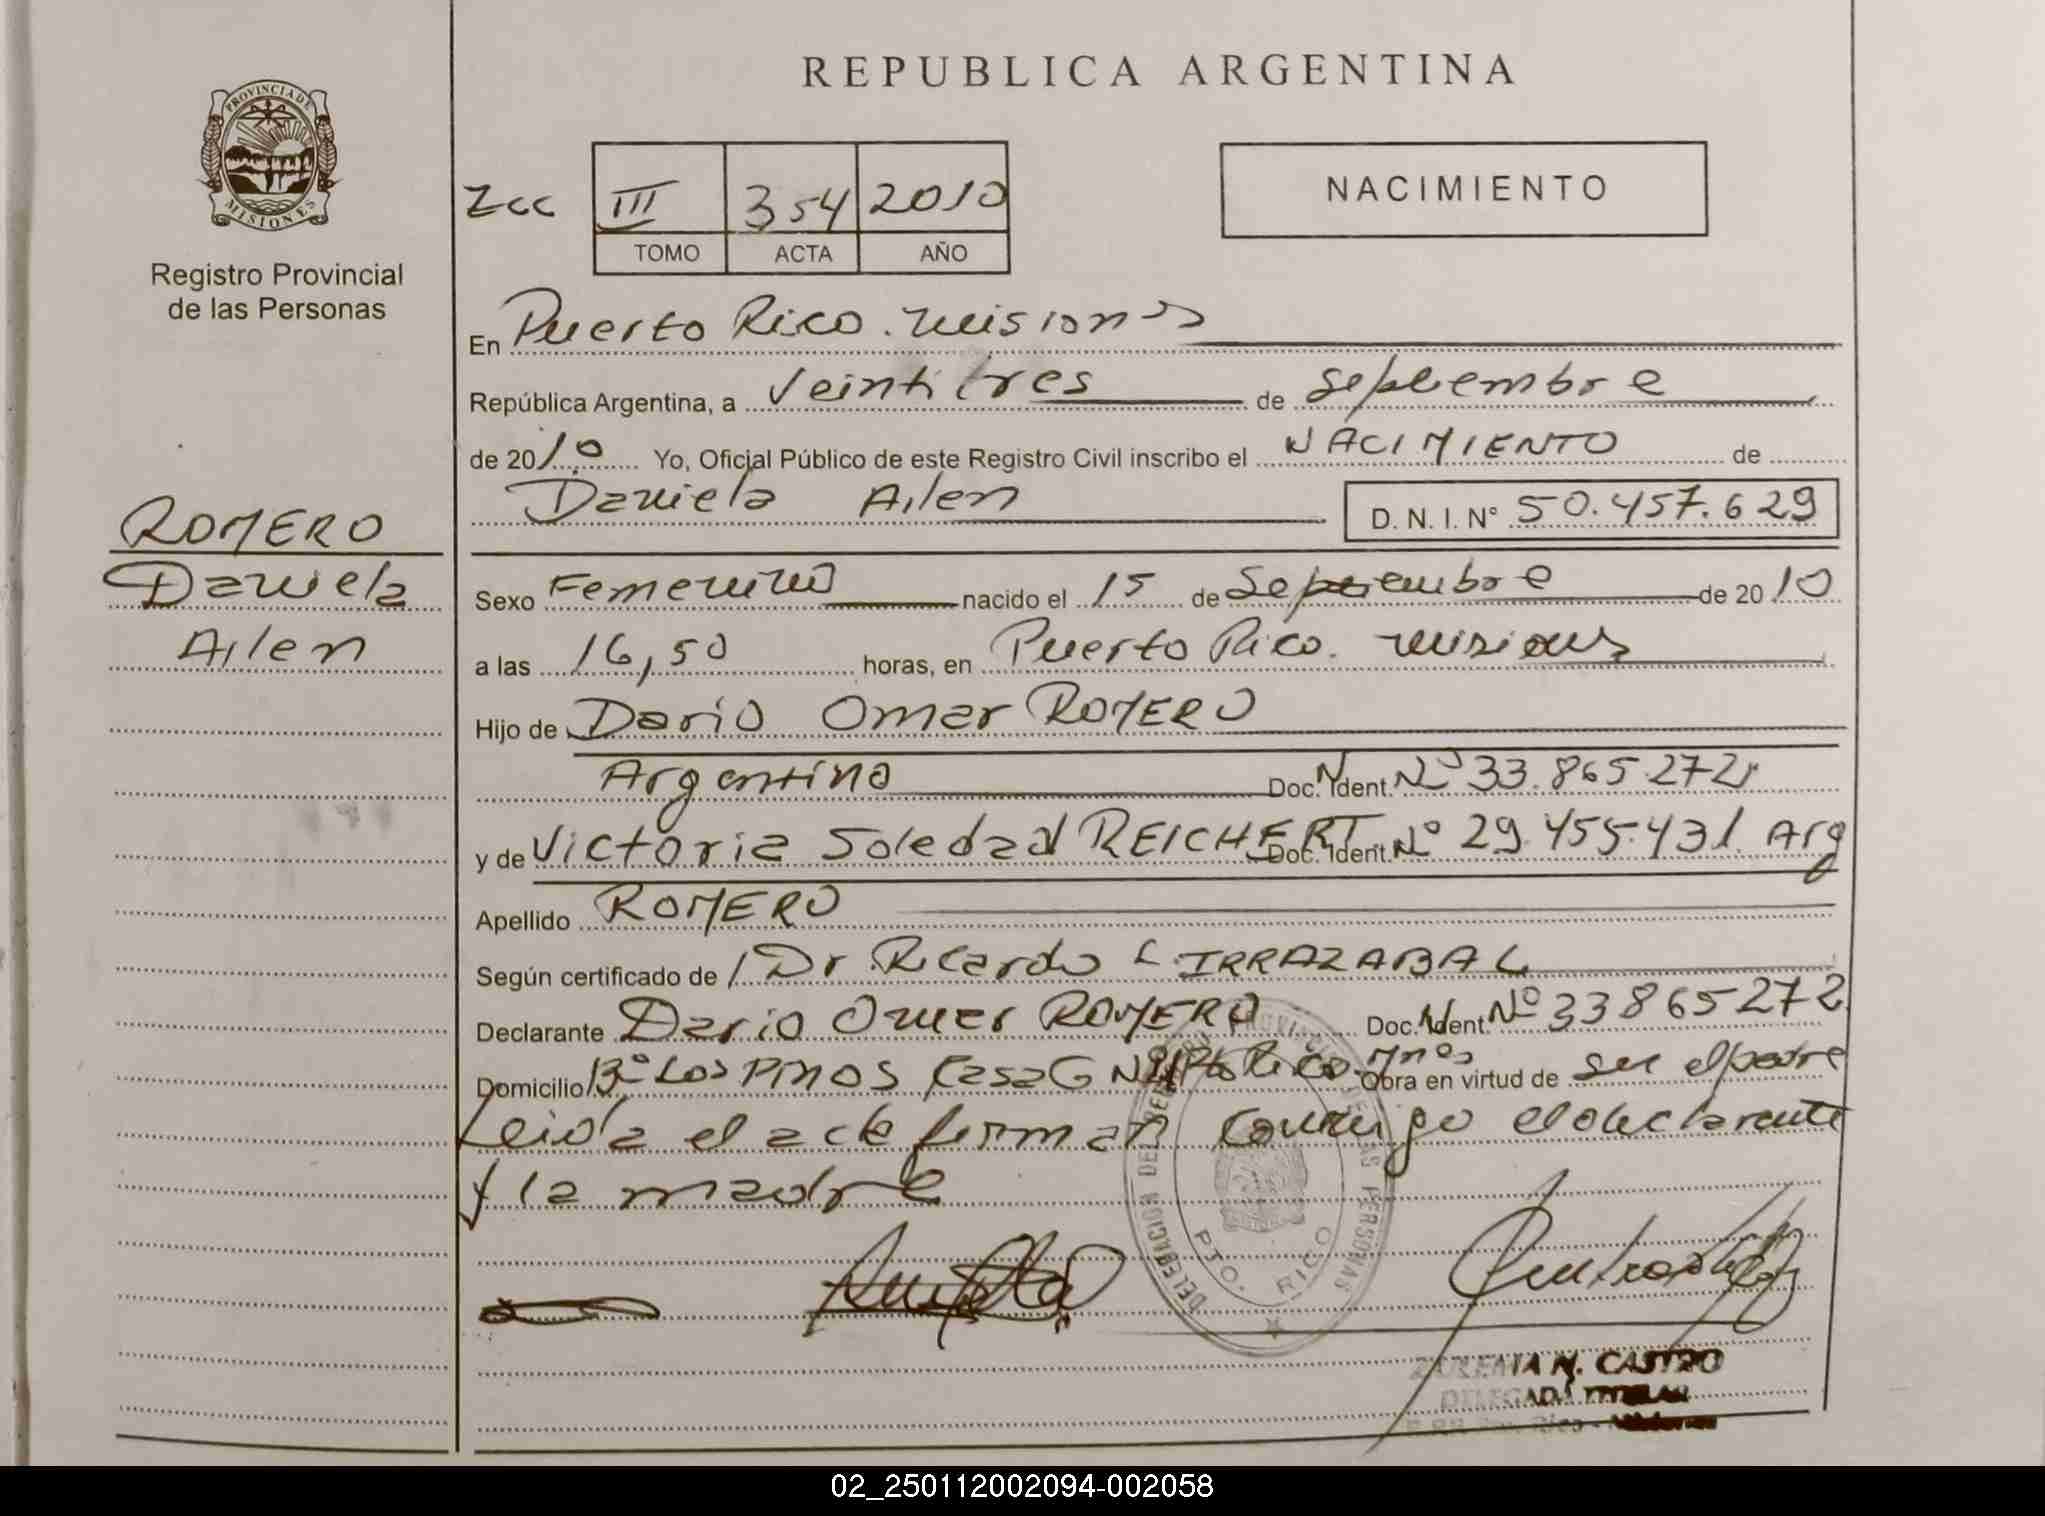 REPUBLICA ARGENTINA
PROVINCIA DE
MISIONES
Registro Provincial
de las Personas
NACIMIENTO
III 354 2010
TOMO ACTA AÑO
En Puerto Rico. Misiones
República Argentina, a Veintitres de Septiembre
de 2010 Yo, Oficial Público de este Registro Civil inscribo el NACIMIENTO de
Daniela Ailen D. N. I. N° 50.457.629
ROMERO
Daniela
Ailen
Sexo Femenino nacido el 15 de Septiembre de 2010
a las 16,50 horas, en Puerto Rico. Misiones
Hijo de Dario Omar ROMERO
Argentino Doc. N. Ident. N° 33.865.272
y de Victoria Soledad REICHERT Doc. Ident. N° 29.455.431. Arg
Apellido ROMERO
Según certificado de Dr. Ricardo L IRRAZABAL
Declarante Dario Omar ROMERO Doc. N. Ident. N° 33865272
Domicilio B° Los Pinos Casa G Pto Rico. Mnes Obra en virtud de ser el padre
Leida el acta firman conmigo el declarante
y la madre
DELEGACION DEL REGISTRO PROVINCIAL DE LAS PERSONAS
PTO. RICO
ZULEMA N. CASTRO
DELEGADA TITULAR
02_250112002094-002058